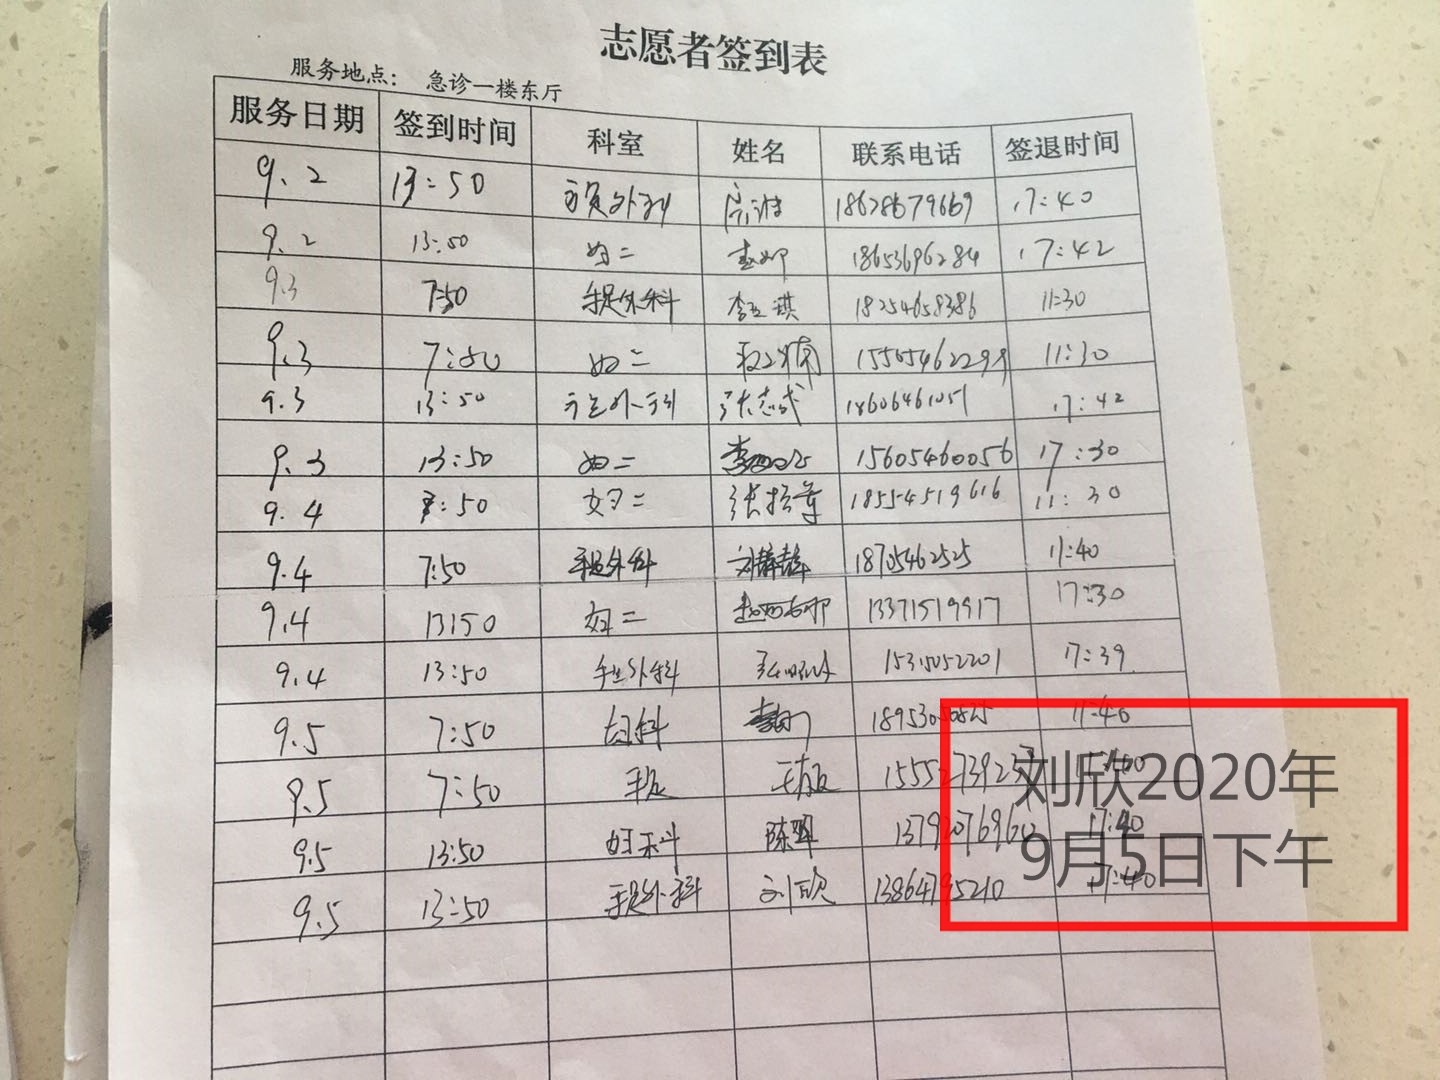 志愿者签到表
服务地点： 急诊一楼东厅
服务日期 签到时间 科室 姓名 联系电话 签退时间
9.2 13:50 外科 18628679669 17:40
9.2 13:50 妇二 18653696284 17:42
9.3 7:50 手足外科 18254658386 11:30
9.3 7:50 妇二 15545462299 11:30
9.3 13:50 手足外科 张志武 18606461051 17:42
9.3 13:50 妇二 15605460056 17:30
9.4 7:50 妇二 18554519616 11:30
9.4 7:50 手足外科 刘静静 18705462525 11:40
9.4 13:50 妇二 13371519917 17:30
9.4 13:50 手足外科 15315052201 17:39
9.5 7:50 妇科 11:40
9.5 7:50 手足
9.5 13:50 妇科 陈翠 17:40
9.5 13:50 手足外科 刘欣 13864795210 17:40
刘欣2020年
9月5日下午